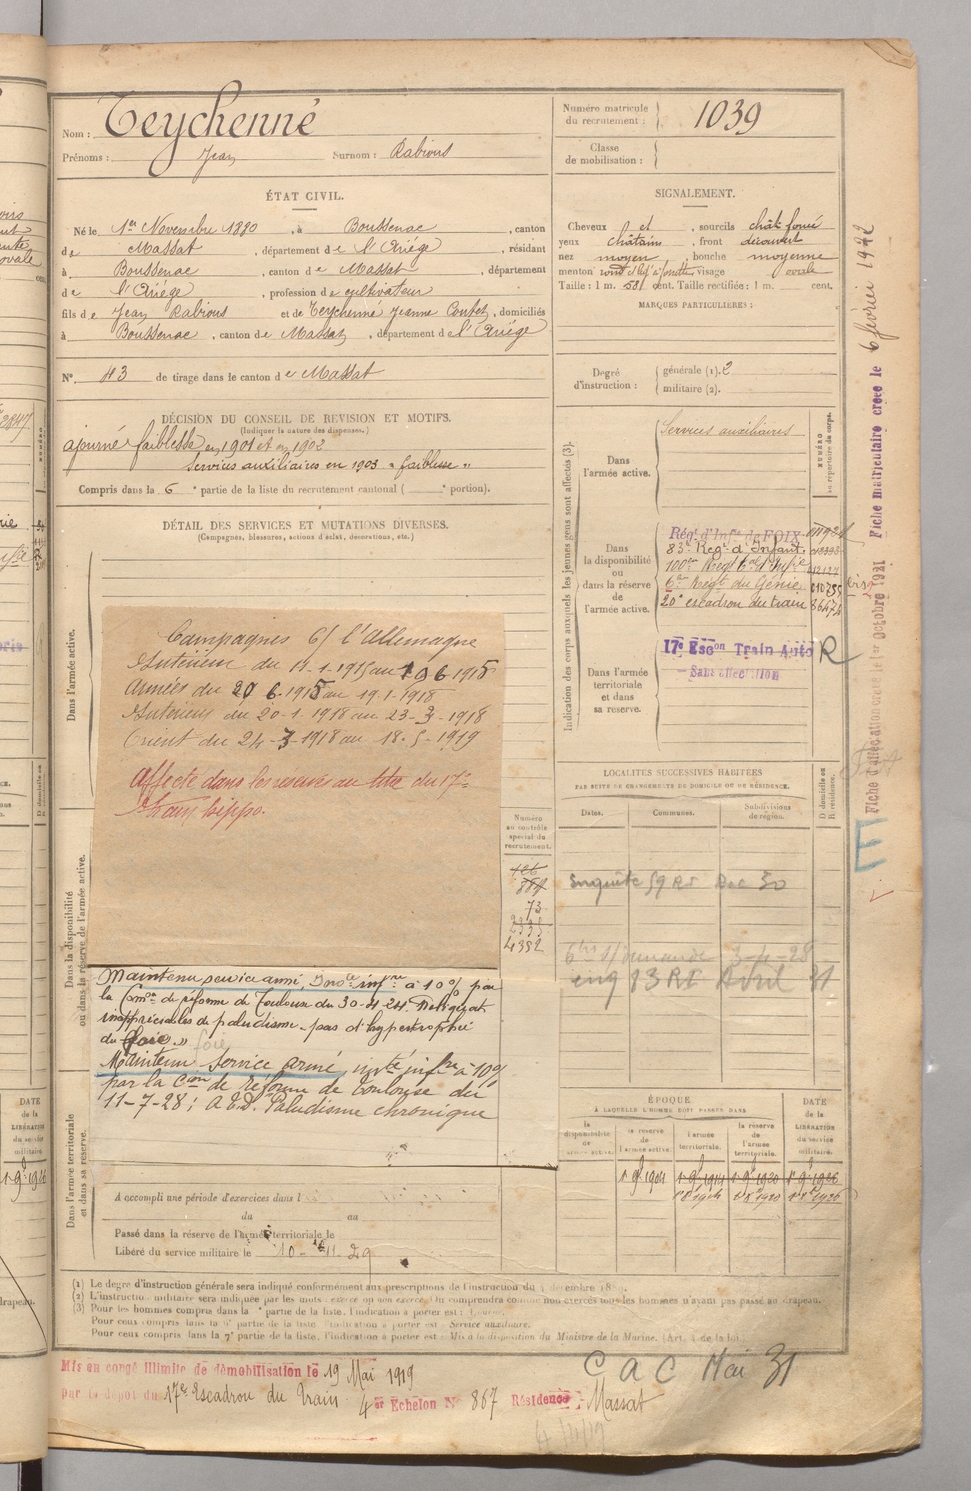 Nom : Teychenné
Prénoms : Jean Surnom : Rabious
Numéro matricule du recrutement : 1039
Classe de mobilisation :
ÉTAT CIVIL.
Né le 1er Novembre 1880, à Boussenac, canton
de Massat, département de l'Ariége, résidant
à Boussenac, canton de Massat, département
de l'Ariége, profession de cultivateur
fils de Jean Rabious et de Teychenné Jeanne, domiciliés
à Boussenac, canton de Massat, département de l'Ariége
N° 43 de tirage dans le canton de Massat
SIGNALEMENT.
Cheveux et, sourcils chât foncé
yeux châtains, front découvert
nez moyen, bouche moyenne
menton rond visage ovale
Taille : 1 m. 581 cent. Taille rectifiée : 1 m. cent.
MARQUES PARTICULIÈRES :
Degré d'instruction : générale (1). 2
militaire (2).
DÉCISION DU CONSEIL DE REVISION ET MOTIFS.
(Indiquer la nature des dispenses.)
ajourné faiblesse en 1901 et en 1902
Services auxiliaires en 1903 « faiblesse »
Compris dans la 6e partie de la liste du recrutement cantonal ( portion).
DÉTAIL DES SERVICES ET MUTATIONS DIVERSES.
(Campagnes, blessures, actions d'éclat, décorations, etc.)
Dans l'armée active.
Campagnes c/ l'Allemagne
Intérieur du 19.1.1915 au 19 6 1915
Armées du 20 6.1915 au 19.1.1918
Intérieur du 20-1.1918 au 23-3-1918
Orient du 24-3-1918 au 18.5-1919
Affecté dans les reserves au titre du 17e
Train hippo.
Dans la disponibilité ou dans la réserve de l'armée active.
Maintenu service armé Invte infre à 10% par
la Comon de réforme de Toulouse du 30-4-24
inappréciables de paludisme - pas d'hypertrophie
du foie. » foie
Maintenu service armé, invté infre à 10%
par la Cion de réforme de Toulouse du
11-7-28; A.E.D. Paludisme chronique
Dans l'armée territoriale et dans sa réserve.
A accompli une période d'exercices dans l
du au
Passé dans la réserve de l'armée territoriale le
Libéré du service militaire le 10-11-29
Numéro au contrôle spécial du recrutement.
73
2335
4352
Indication des corps auxquels les jeunes gens sont affectés (3).
NUMÉRO au répertoire du corps.
Dans l'armée active. Services auxiliaires
Dans la disponibilité ou dans la réserve de l'armée active.
Régt d'Infie de FOIX
83e Regt d'Infant
100e Regt d'Infie
6er Regt du Génie 010755
20e escadron du train 86474
Dans l'armée territoriale et dans sa réserve.
17e Escon Train Auto R
Sans affectation
LOCALITÉS SUCCESSIVES HABITÉES
PAR SUITE DE CHANGEMENTS DE DOMICILE OU DE RÉSIDENCE.
Dates. Communes. Subdivisions de région. D domicile ou R résidence.
Enquête 59 RI Dec 30
3-4-28
enq 83 RI Avril 31
ÉPOQUE
À LAQUELLE L'HOMME DOIT PASSER DANS
la disponibilité de l'armée active. la réserve de l'armée active. l'armée territoriale. la réserve de l'armée territoriale. DATE de la LIBÉRATION du service militaire.
1 9bre 1904 1 9bre 1914 1 9bre 1920 1er 9bre 1926
1er 8bre 1914 1er 8bre 1920 1er 8bre 1926
(1) Le degré d'instruction générale sera indiqué conformément aux prescriptions de l'instruction du 4 décembre 18
(2) L'instruction militaire sera indiquée par les mots : exercé ou non exercé. On comprendra comme non exercés tous les hommes n'ayant pas passé au drapeau.
(3) Pour les hommes compris dans la e partie de la liste, l'indication à porter est :
Pour ceux compris dans la 6e partie de la liste l'indication à porter est : Service auxiliaire.
Pour ceux compris dans la 7e partie de la liste, l'indication à porter est : Mis à la disposition du Ministre de la Marine. (Art. 4 de la loi).
Mis en congé illimité de démobilisation le 19 Mai 1919
par le dépôt du 17e Escadron du Train 4er Echelon N° 867 Résidence : Massat
C a C Mai 31
Fiche matriculaire créée le 6 février 1942
Fiche d'affectation créée le 1er Octobre 1921